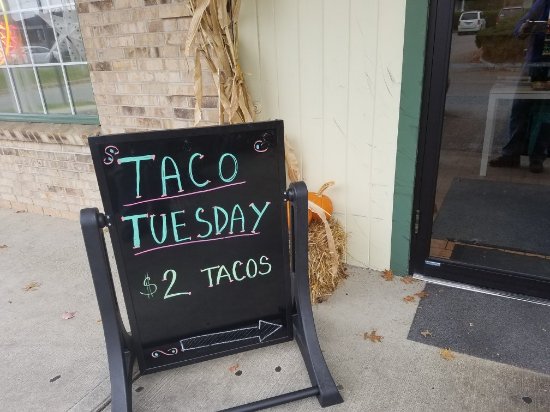 TACO
TUESDAY
$2 TACOS